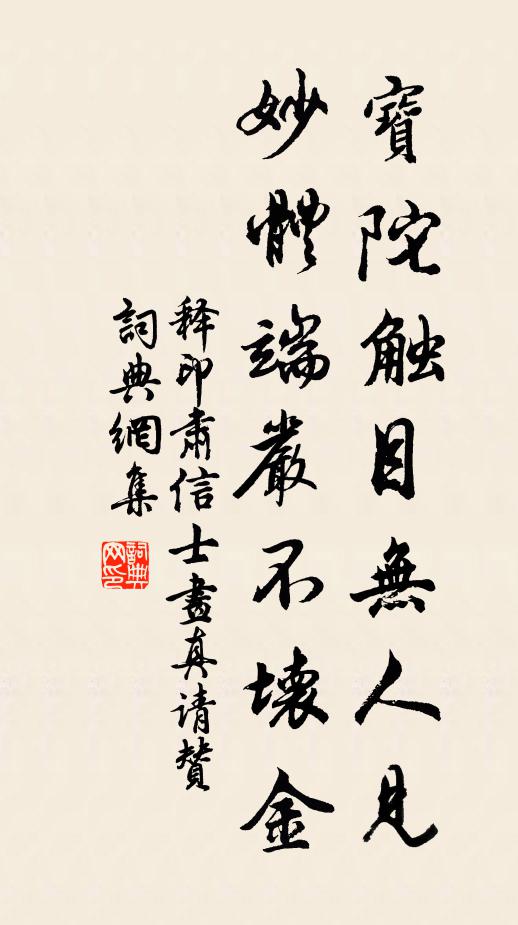 寶陀触目無人見
妙體端嚴不壞金
释印肃信士畫真请贊
詞典網集
詞典
网印